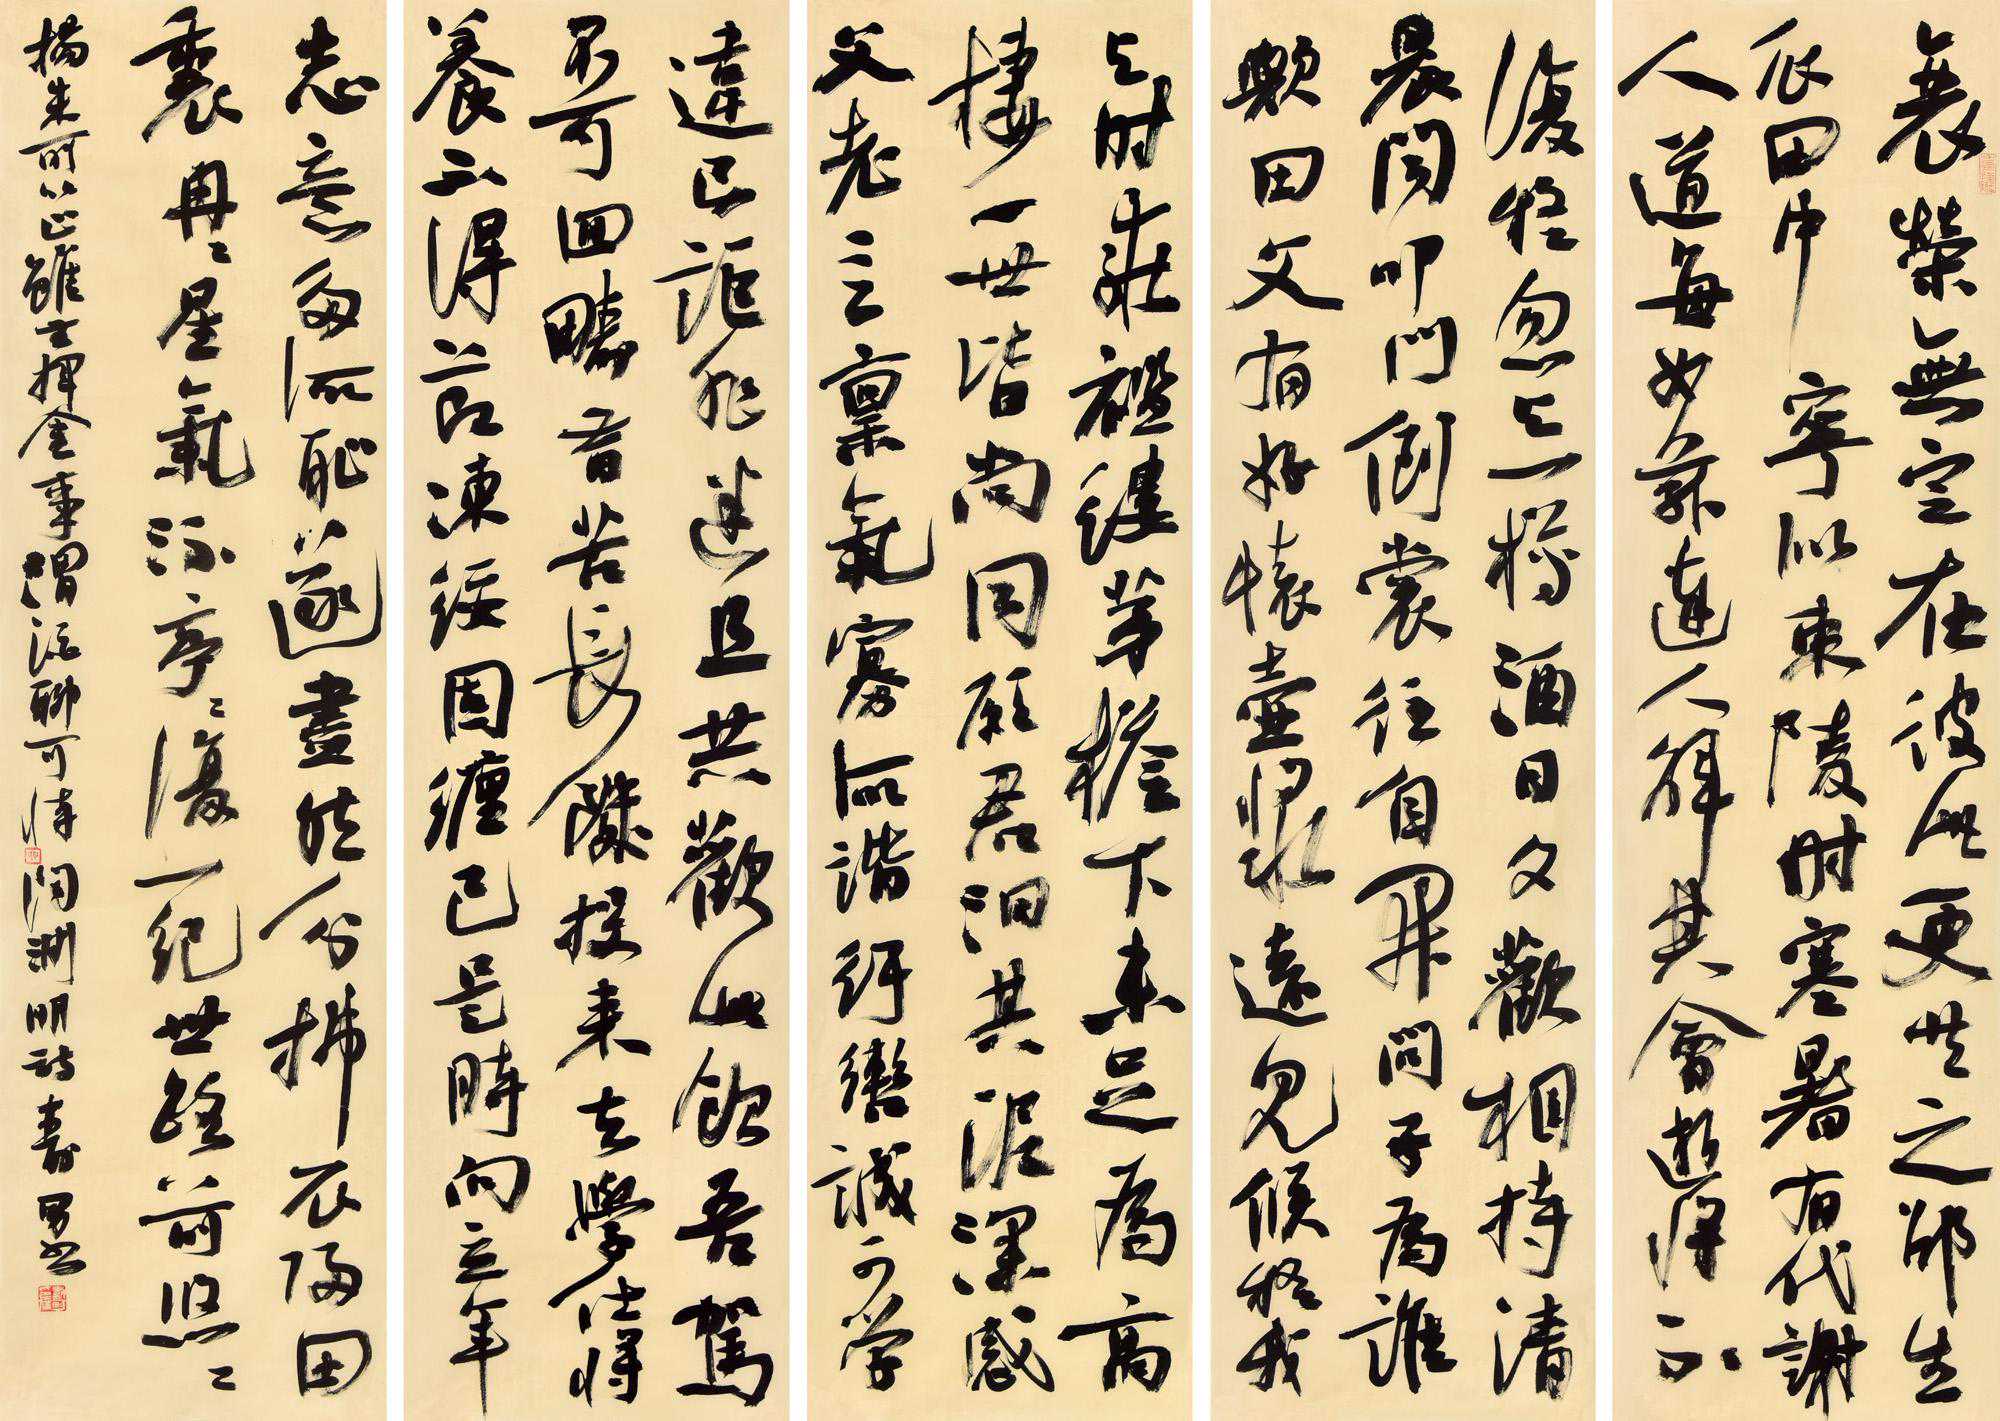 衰榮無定在彼此更共之邵生
瓜田中寧似東陵時寒暑有代謝
人道每如茲達人解其會逝將不
復疑忽与一樽酒日夕歡相持清
晨聞叩門倒裳往自開問子為誰
歟田父有好懷壺漿遠見候疑我
与時乖襤縷茅檐下未足為高
棲一世皆尚同願君汩其泥深感
父老言稟氣寡所諧紆轡誠可學
違己詎非迷且共歡此飲吾駕
不可回疇昔苦長饑投耒去學仕將
養不得節凍餒固纏己是時向立年
志意多所恥遂盡然分拂衣歸田
裏冉〻星氣流亭〻復一紀世路前悠〻
楊朱所以止雖无揮金事濁酒聊可恃 陶淵明詩 壽男書